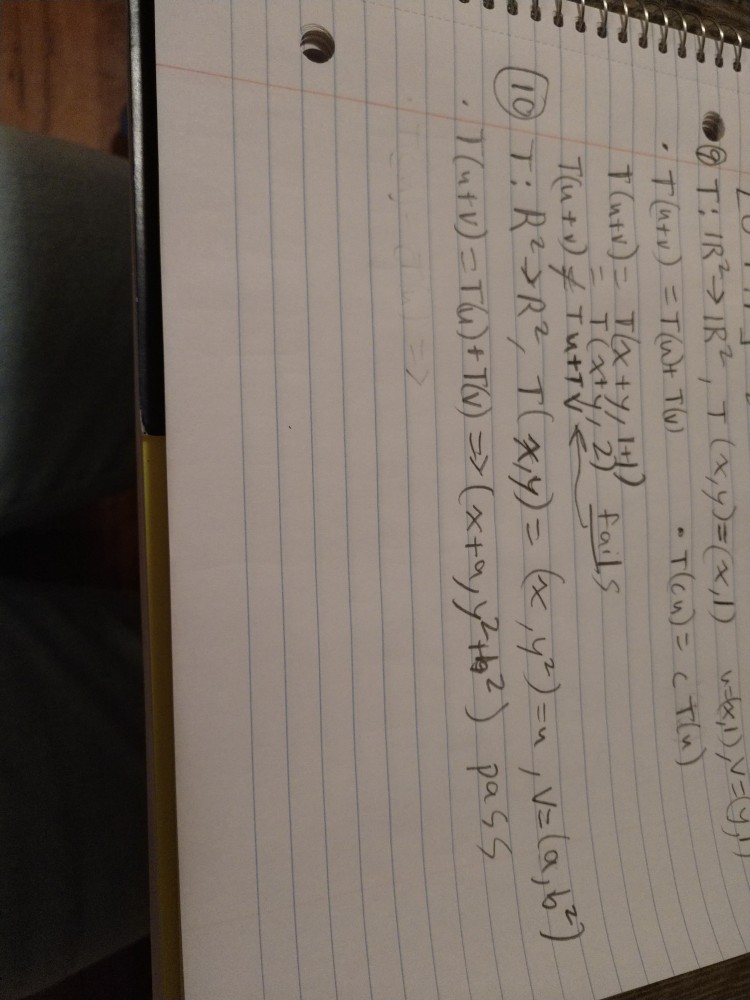 ⑨ T: ℝ²→ℝ², T(x,y)=(x,1) u=(x,1), v=(y,1)
· T(u+v) = T(u)+T(v) · T(cu) = c T(u)
T(u+v) = T(x+y, 1+1)
= T(x+y, 2) fails
T(u+v) ≠ Tu+Tv ←
⑩ T: R²→R², T(x,y) = (x, y²) = u, v=(a,b²)
· T(u+v) = T(u)+T(v) => (x+a, y²+b²) pass